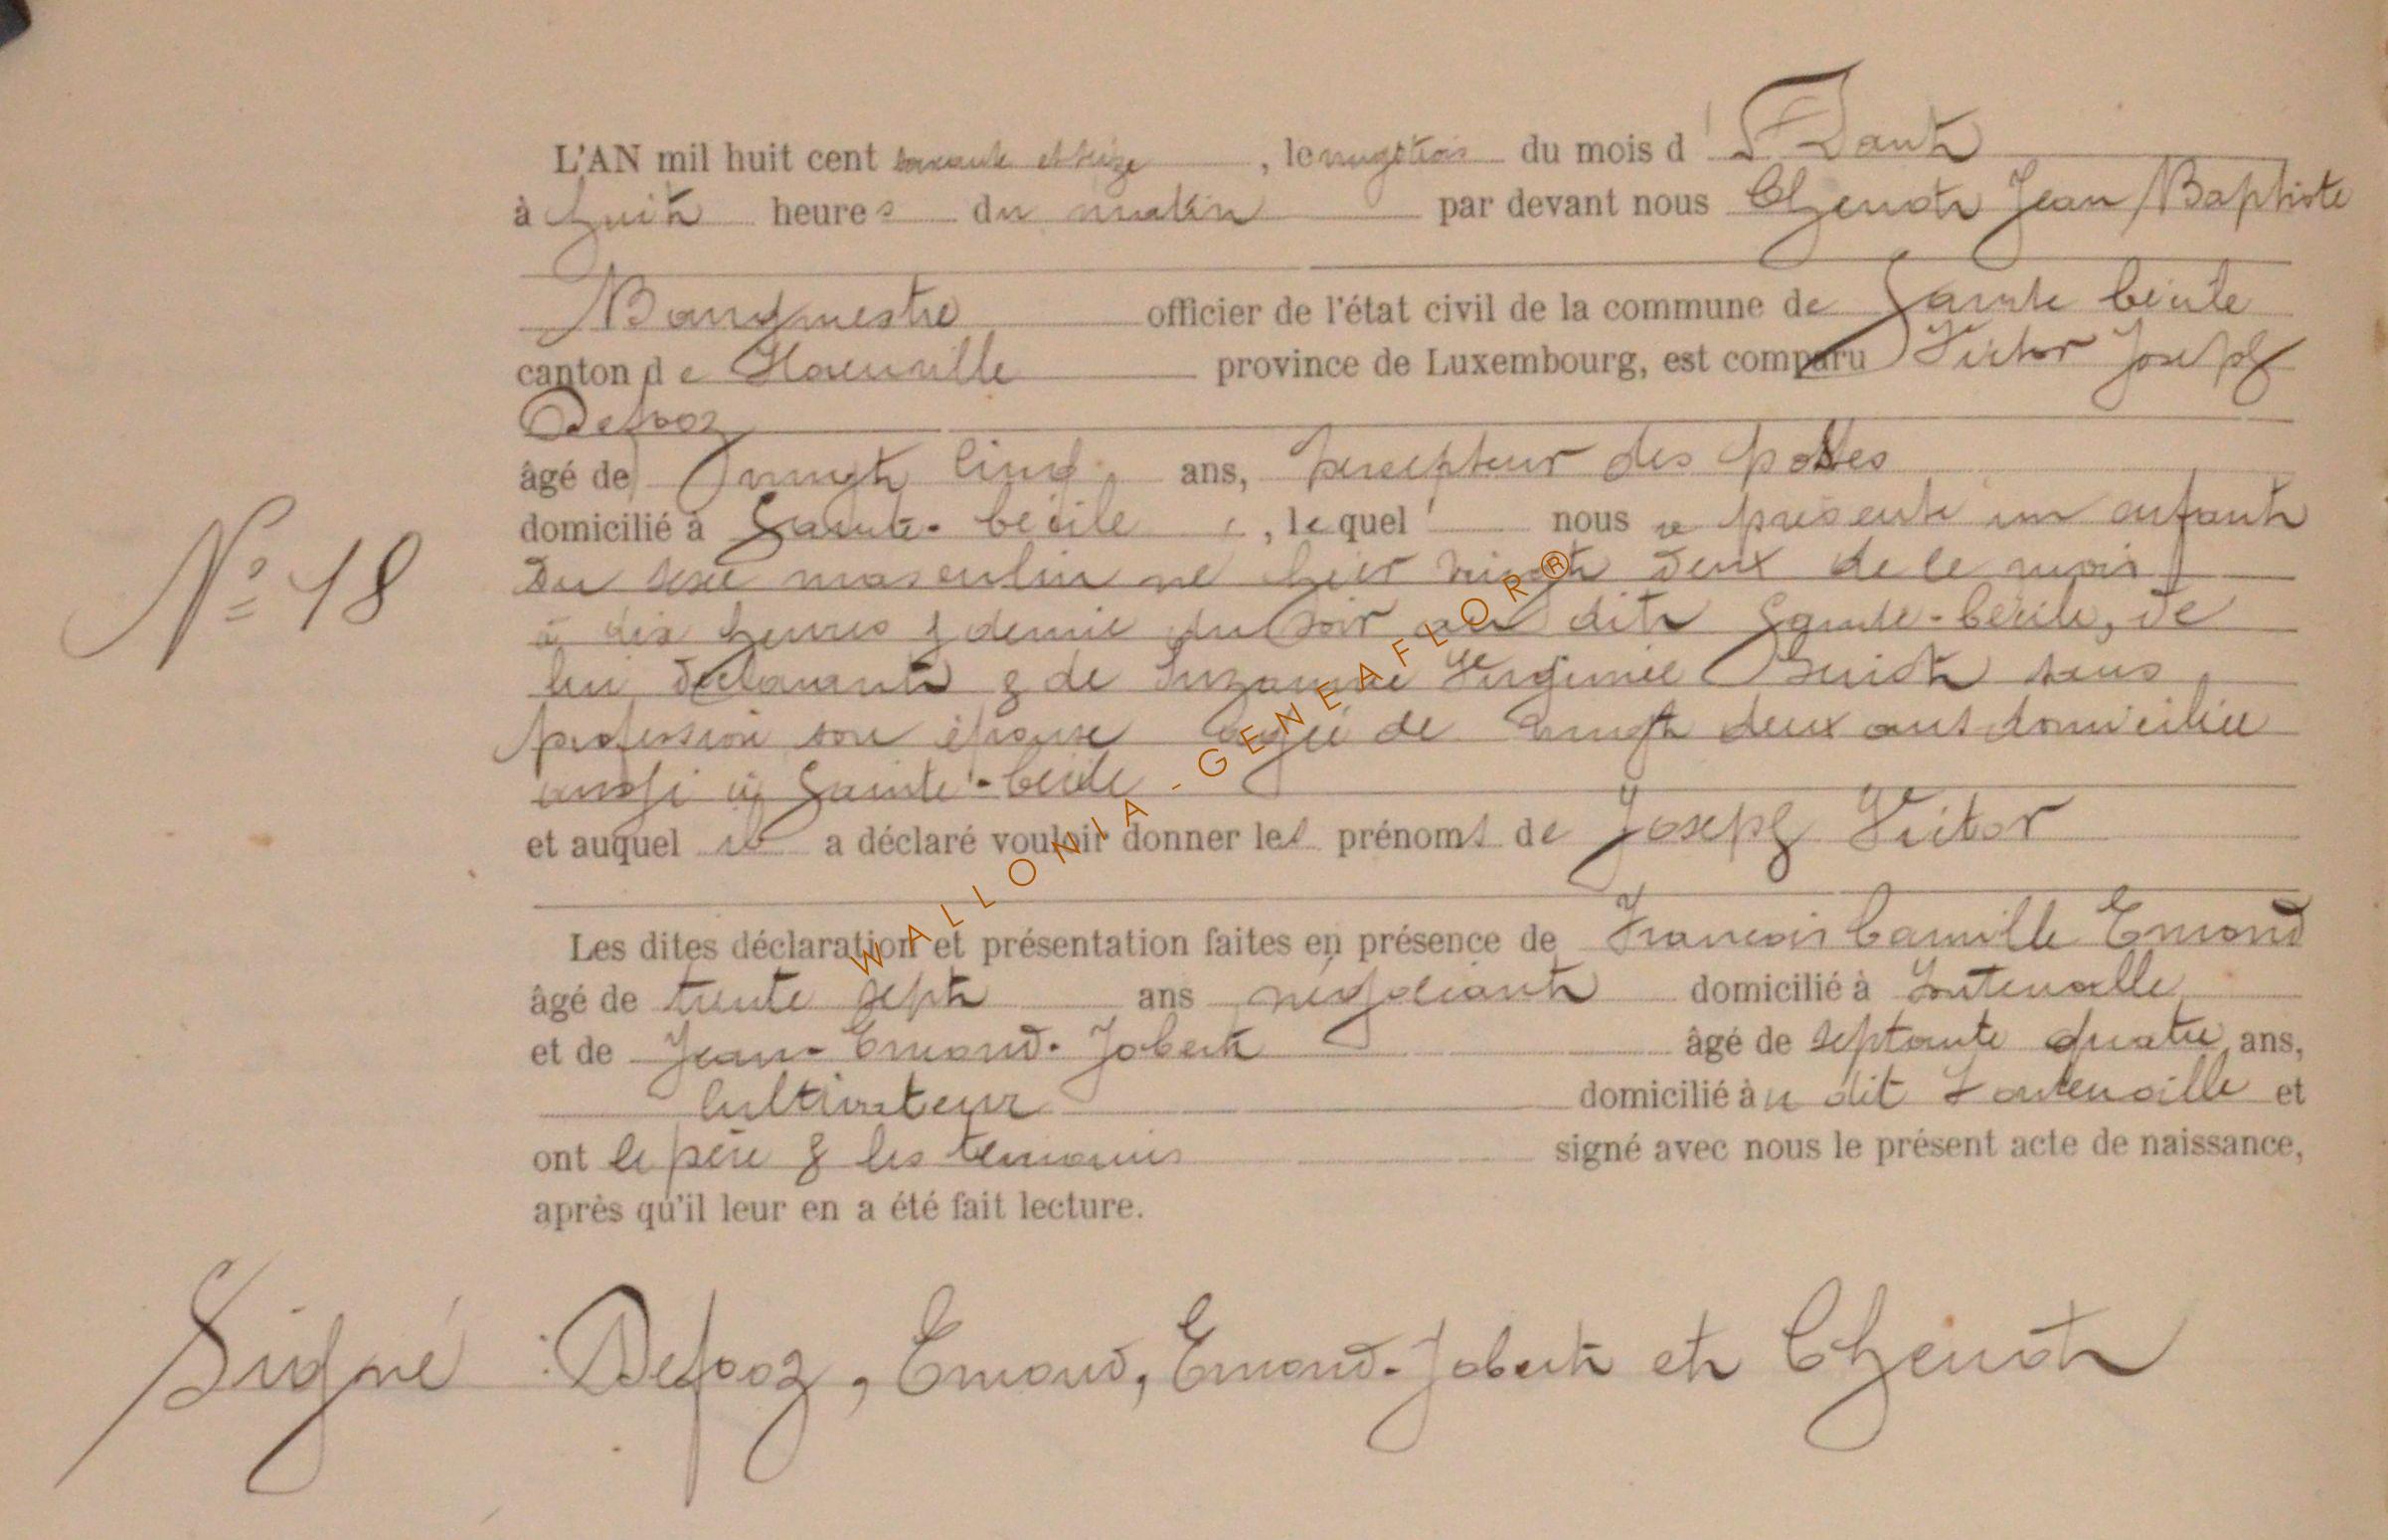 L'AN mil huit cent soixante et seize, le vingt trois du mois d'Août
à huit heures du matin par devant nous Chenot Jean Baptiste
Bourgmestre officier de l'état civil de la commune de Sainte Cécile
canton de Florenville province de Luxembourg, est comparu Victor Joseph
Defooz
âgé de vingt cinq ans, percepteur des postes
domicilié à Sainte-Cécile, lequel nous a présenté un enfant
N° 18
du sexe masculin né hier vingt deux de ce mois
à dix heures & demie du soir au dit Sainte-Cécile, de
lui déclarant & de Suzanne Virginie sans
profession son épouse agée de vingt deux ans domiciliée
aussi à Sainte-Cécile
et auquel il a déclaré vouloir donner les prénoms de Joseph Victor
Les dites déclaration et présentation faites en présence de François Camille Emond
âgé de trente sept ans négociant domicilié à Fontenoille
et de Jean-Emond-Jobert âgé de septante quatre ans,
Cultivateur domicilié àu dit Fontenoille et
ont le père & les témoins signé avec nous le présent acte de naissance,
après qu'il leur en a été fait lecture.
Signé : Defooz, Emond, Emond-Jobert et Chenot
WALLONIA-GENEAFLOR®